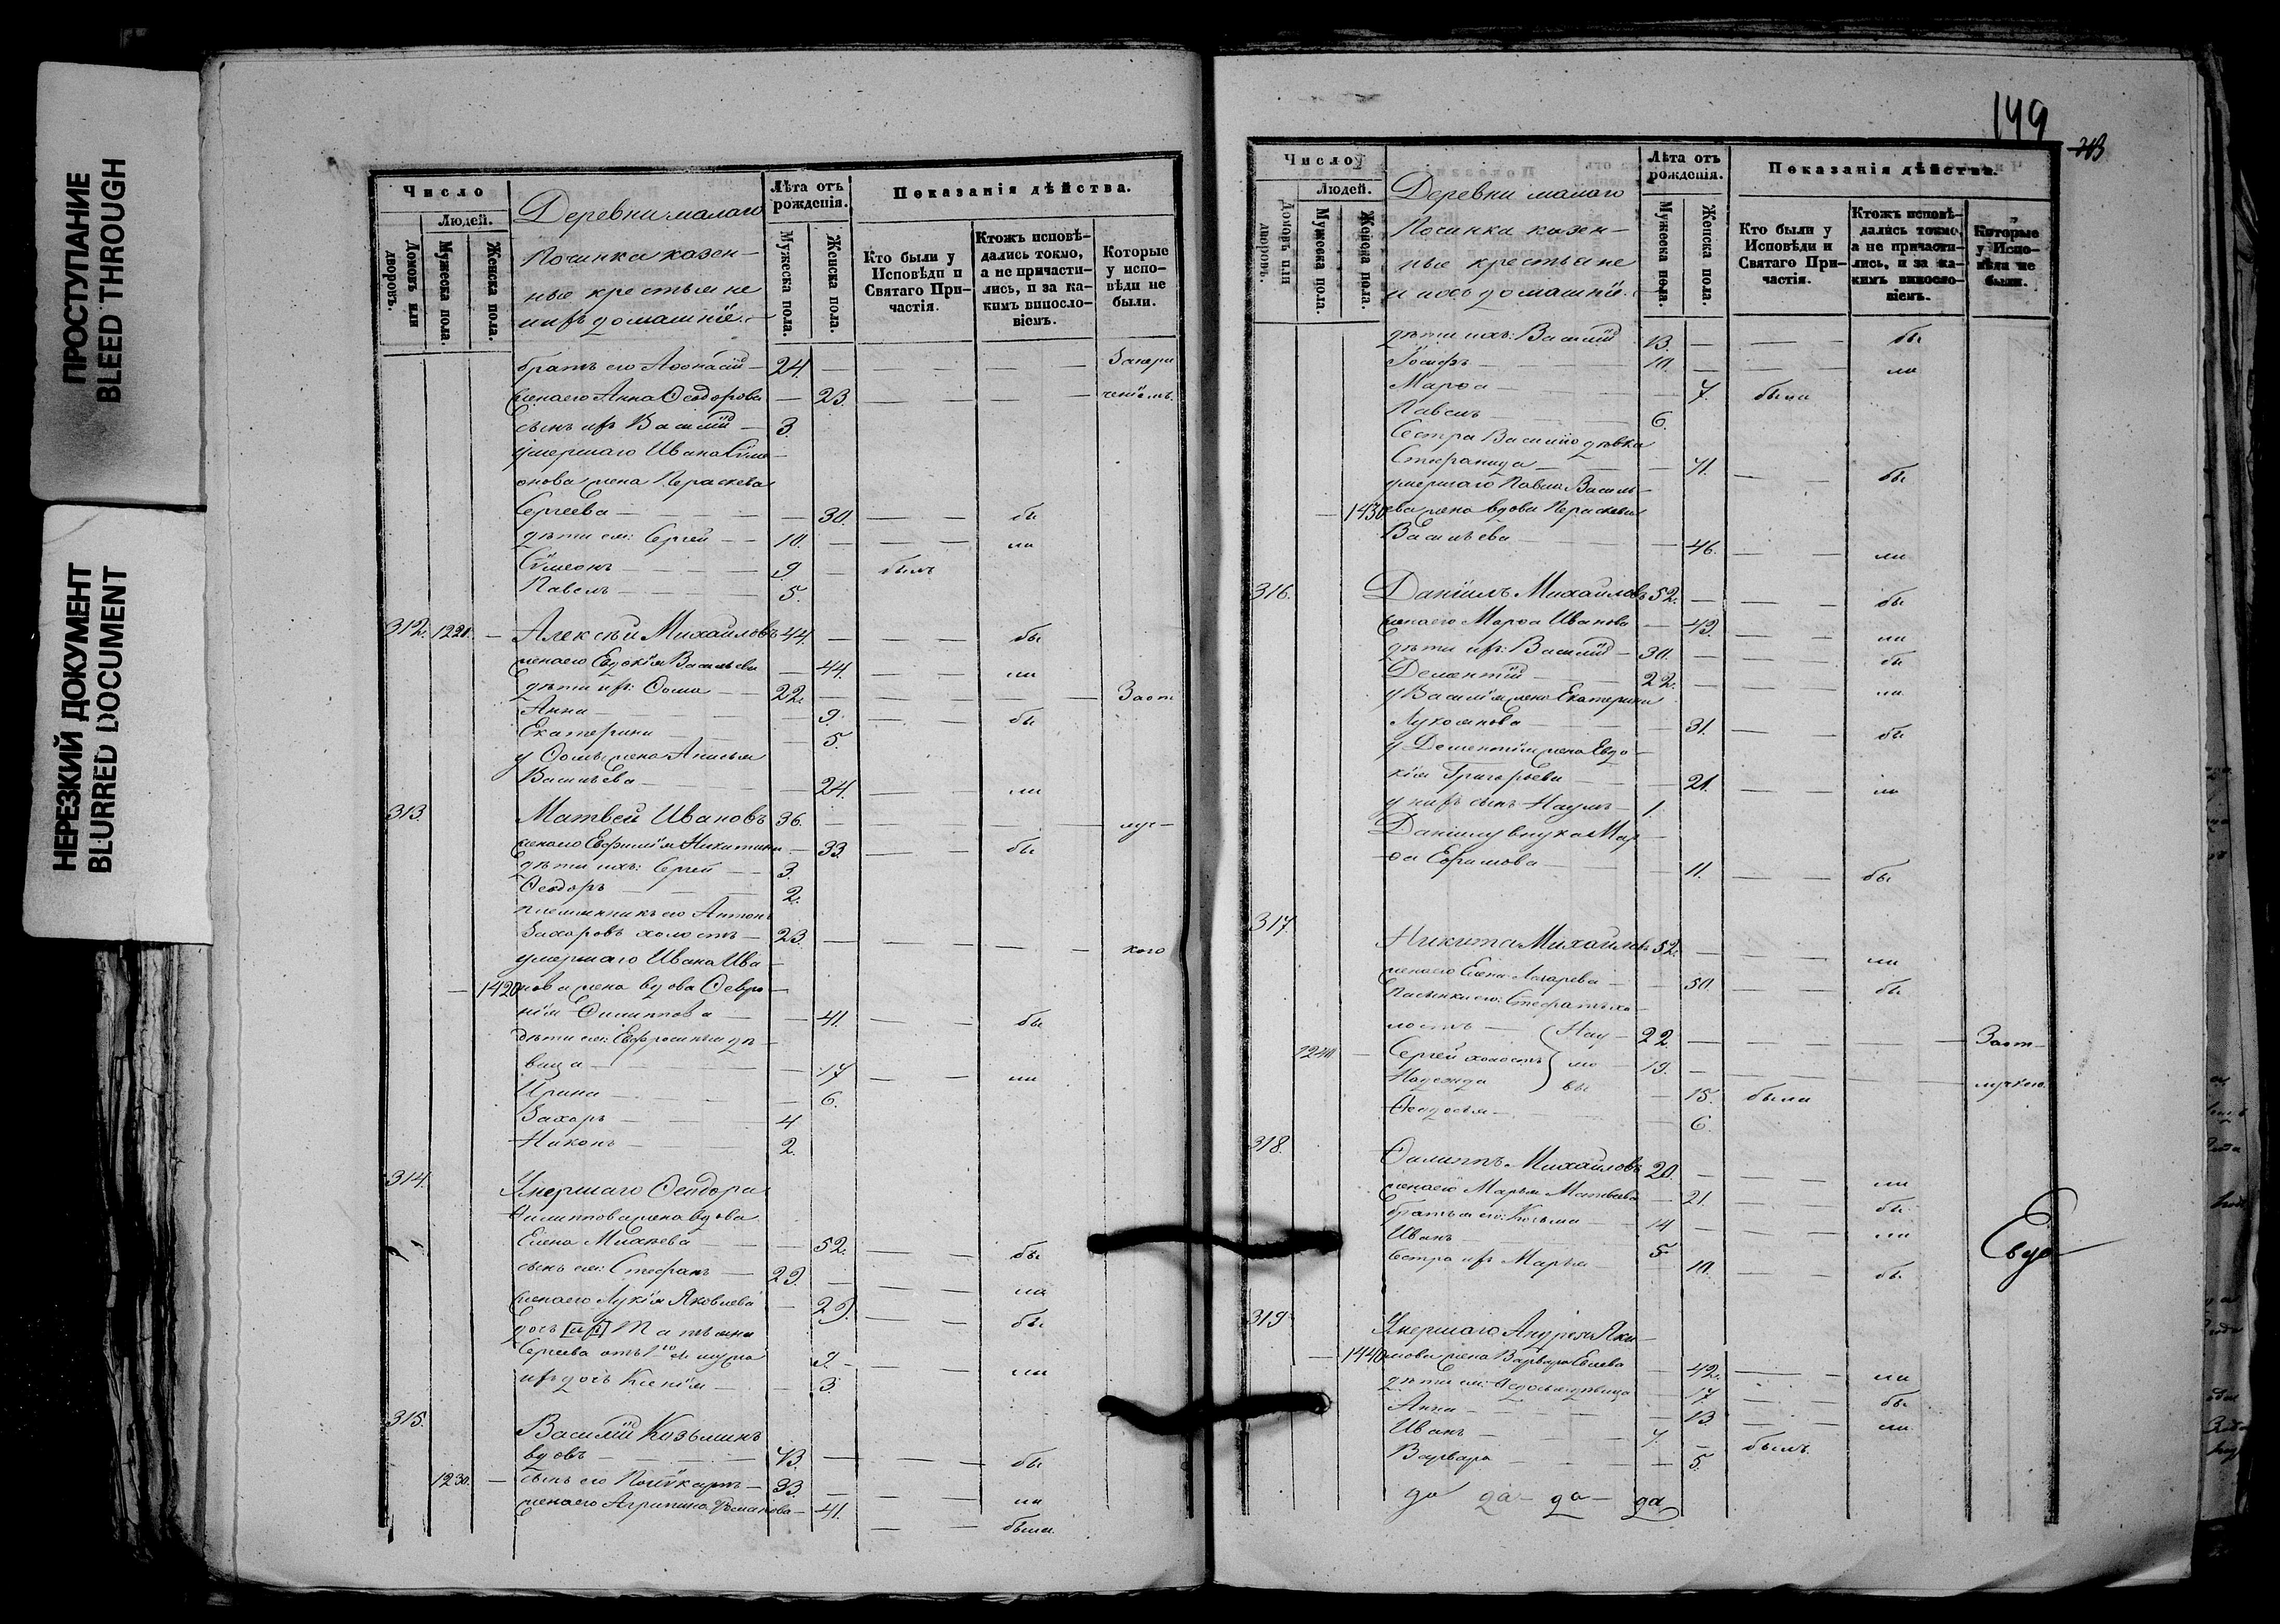 ПРОСТУПАНИЕ
BLEED THROUGH
НЕРЕЗКИЙ ДОКУМЕНТ
BLURRED DOCUMENT
Число
Людей.
Домовъ или дворовъ.
Мужеска пола.
Женска пола.
Деревни малаго
Починка казен-
ные крестьяне
и ихъ домашніе.
Лѣта отъ рожденія.
Мужеска пола.
Женска пола.
Показанія дѣйства.
Кто были у Исповѣди и Святаго Причастія.
Ктожъ исповѣдались токмо, а не причастились, и за какимъ винословіемъ.
Которые у исповѣди не были.
братъ его Аѳонасій — 24.
жена его Анна Ѳеодорова — 23.
сынъ ихъ Василій — 3.
умершаго Ивана Симе-
онова жена Параскева
Сергеева — 30. бы
дѣти ея: Сергей — 10. ли
Симеонъ — 9 былъ
Павелъ — 5.
312. 1220. — Алексѣй Михайловъ 44. бы
жена его Евдокія Васильева — 44. ли
дѣти ихъ: Ѳома — 22. Заот
Анна — 9. бы
Екатерина — 5.
у Ѳомы жена Анисья
Васильева — 24. ли
313. Матвей Ивановъ 36. луч-
жена его Евфимія Никитина — 33 бы
дѣти ихъ: Сергей — 3.
Ѳеодоръ — 2.
племянникъ его Антонъ
Захаровъ холостъ — 23. кою
умершаго Ивана Ива-
1420 нова жена вдова Ѳевро-
нія Филиппова — 41. бы
дѣти ея: Евфросинья дѣ-
вица — 17 ли
Ирина — 6.
Захаръ — 4
Никонъ — 2.
314. Умершаго Ѳеодора
Филиппова жена вдова
Елена Михѣева — 52. бы
сынъ ея: Стефанъ — 29. ли
жена его Лукія Яковлева — 29. бы
дочь [ихъ] Татьяна
Сергеева отъ 1го ея мужа — 9 ли
ихъ дочь Ксенія — 3.
315. Василій Козьминъ
вдовъ — 43. бы
1230. — сынъ его Поликарпъ — 33. ли
жена его Агрипина Романова — 41. были
149
Число
Людей.
Домовъ или дворовъ.
Мужеска пола.
Женска пола.
Деревни малаго
Починка казен-
ные крестьяне
и ихъ домашніе.
Лѣта отъ рожденія.
Мужеска пола.
Женска пола.
Показанія дѣйства.
Кто были у Исповѣди и Святаго Причастія.
Ктожъ исповѣдались токмо, а не причастились, и за какимъ винословіемъ.
Которые у Исповѣди не были.
дѣти ихъ: Василій 13. бы
Іосифъ — 10. ли
Марѳа — 7. была
Павелъ — 6.
Сестра Василію дѣвка
Стефанида — 41. бы
умершаго Павла Василь-
1430 ева жена вдова Параскева
Васильева — 46. ли
316. Даніилъ Михайловъ 52. бы
жена его Марѳа Иванова — 49. ли
дѣти ихъ: Василій — 30. бы
Дементій — 22. ли
у Василія жена Екатерина
Лукоянова — 31. бы
у Дементія жена Евдо-
кія Григорьева — 21. ли
у нихъ сынъ Наумъ — 1.
Даніилу внука Мар-
ѳа Ефимова — 11. бы
317. Никита Михайловъ 52. ли
жена его Елена Лазарева — 50. бы
пасынки его: Стефанъ хо-
лостъ — (Нау- 22. Заот-
1240 — Сергей холостъ мо- 19. лучкою.
Надежда вы — 15. были
Ѳеодосья — 6.
318. Филиппъ Михайловъ 20. ли
жена его Марья Матвѣева — 21. бы
братья его: Козьма — 14 ли
Иванъ — 5
Сестра ихъ Марья — 10. бы
Евдо-
319. Умершаго Андрея Яки-
1440 мова жена Варвара Евсева — 42. ли
дѣти ея: Ѳедосья дѣвица — 17. бы
Анна — 13 ли
Иванъ — 7. былъ
Варвара — 5.
да да- да- да